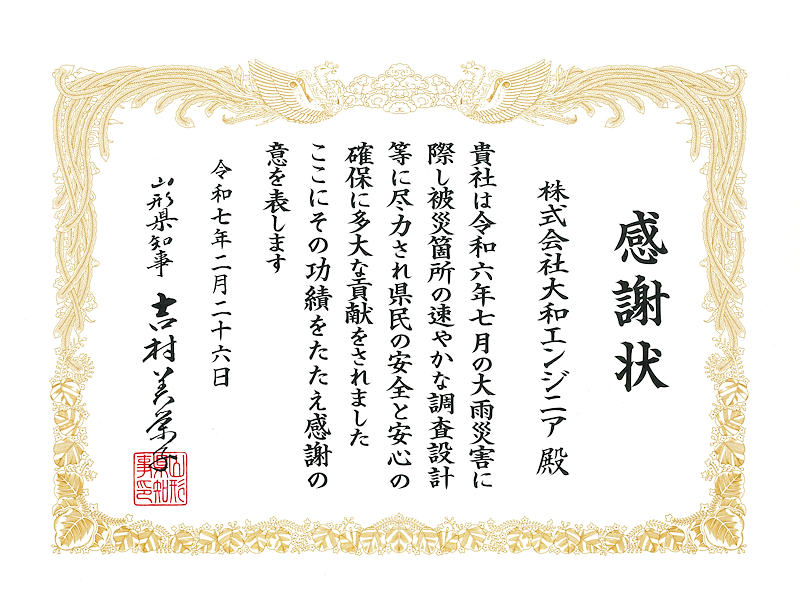 感謝状
株式会社大和エンジニア 殿
貴社は令和六年七月の大雨災害に
際し被災箇所の速やかな調査設計
等に尽力され県民の安全と安心の
確保に多大な貢献をされました
ここにその功績をたたえ感謝の
意を表します
令和七年二月二十六日
山形県知事 吉村美栄子
山形県知事印